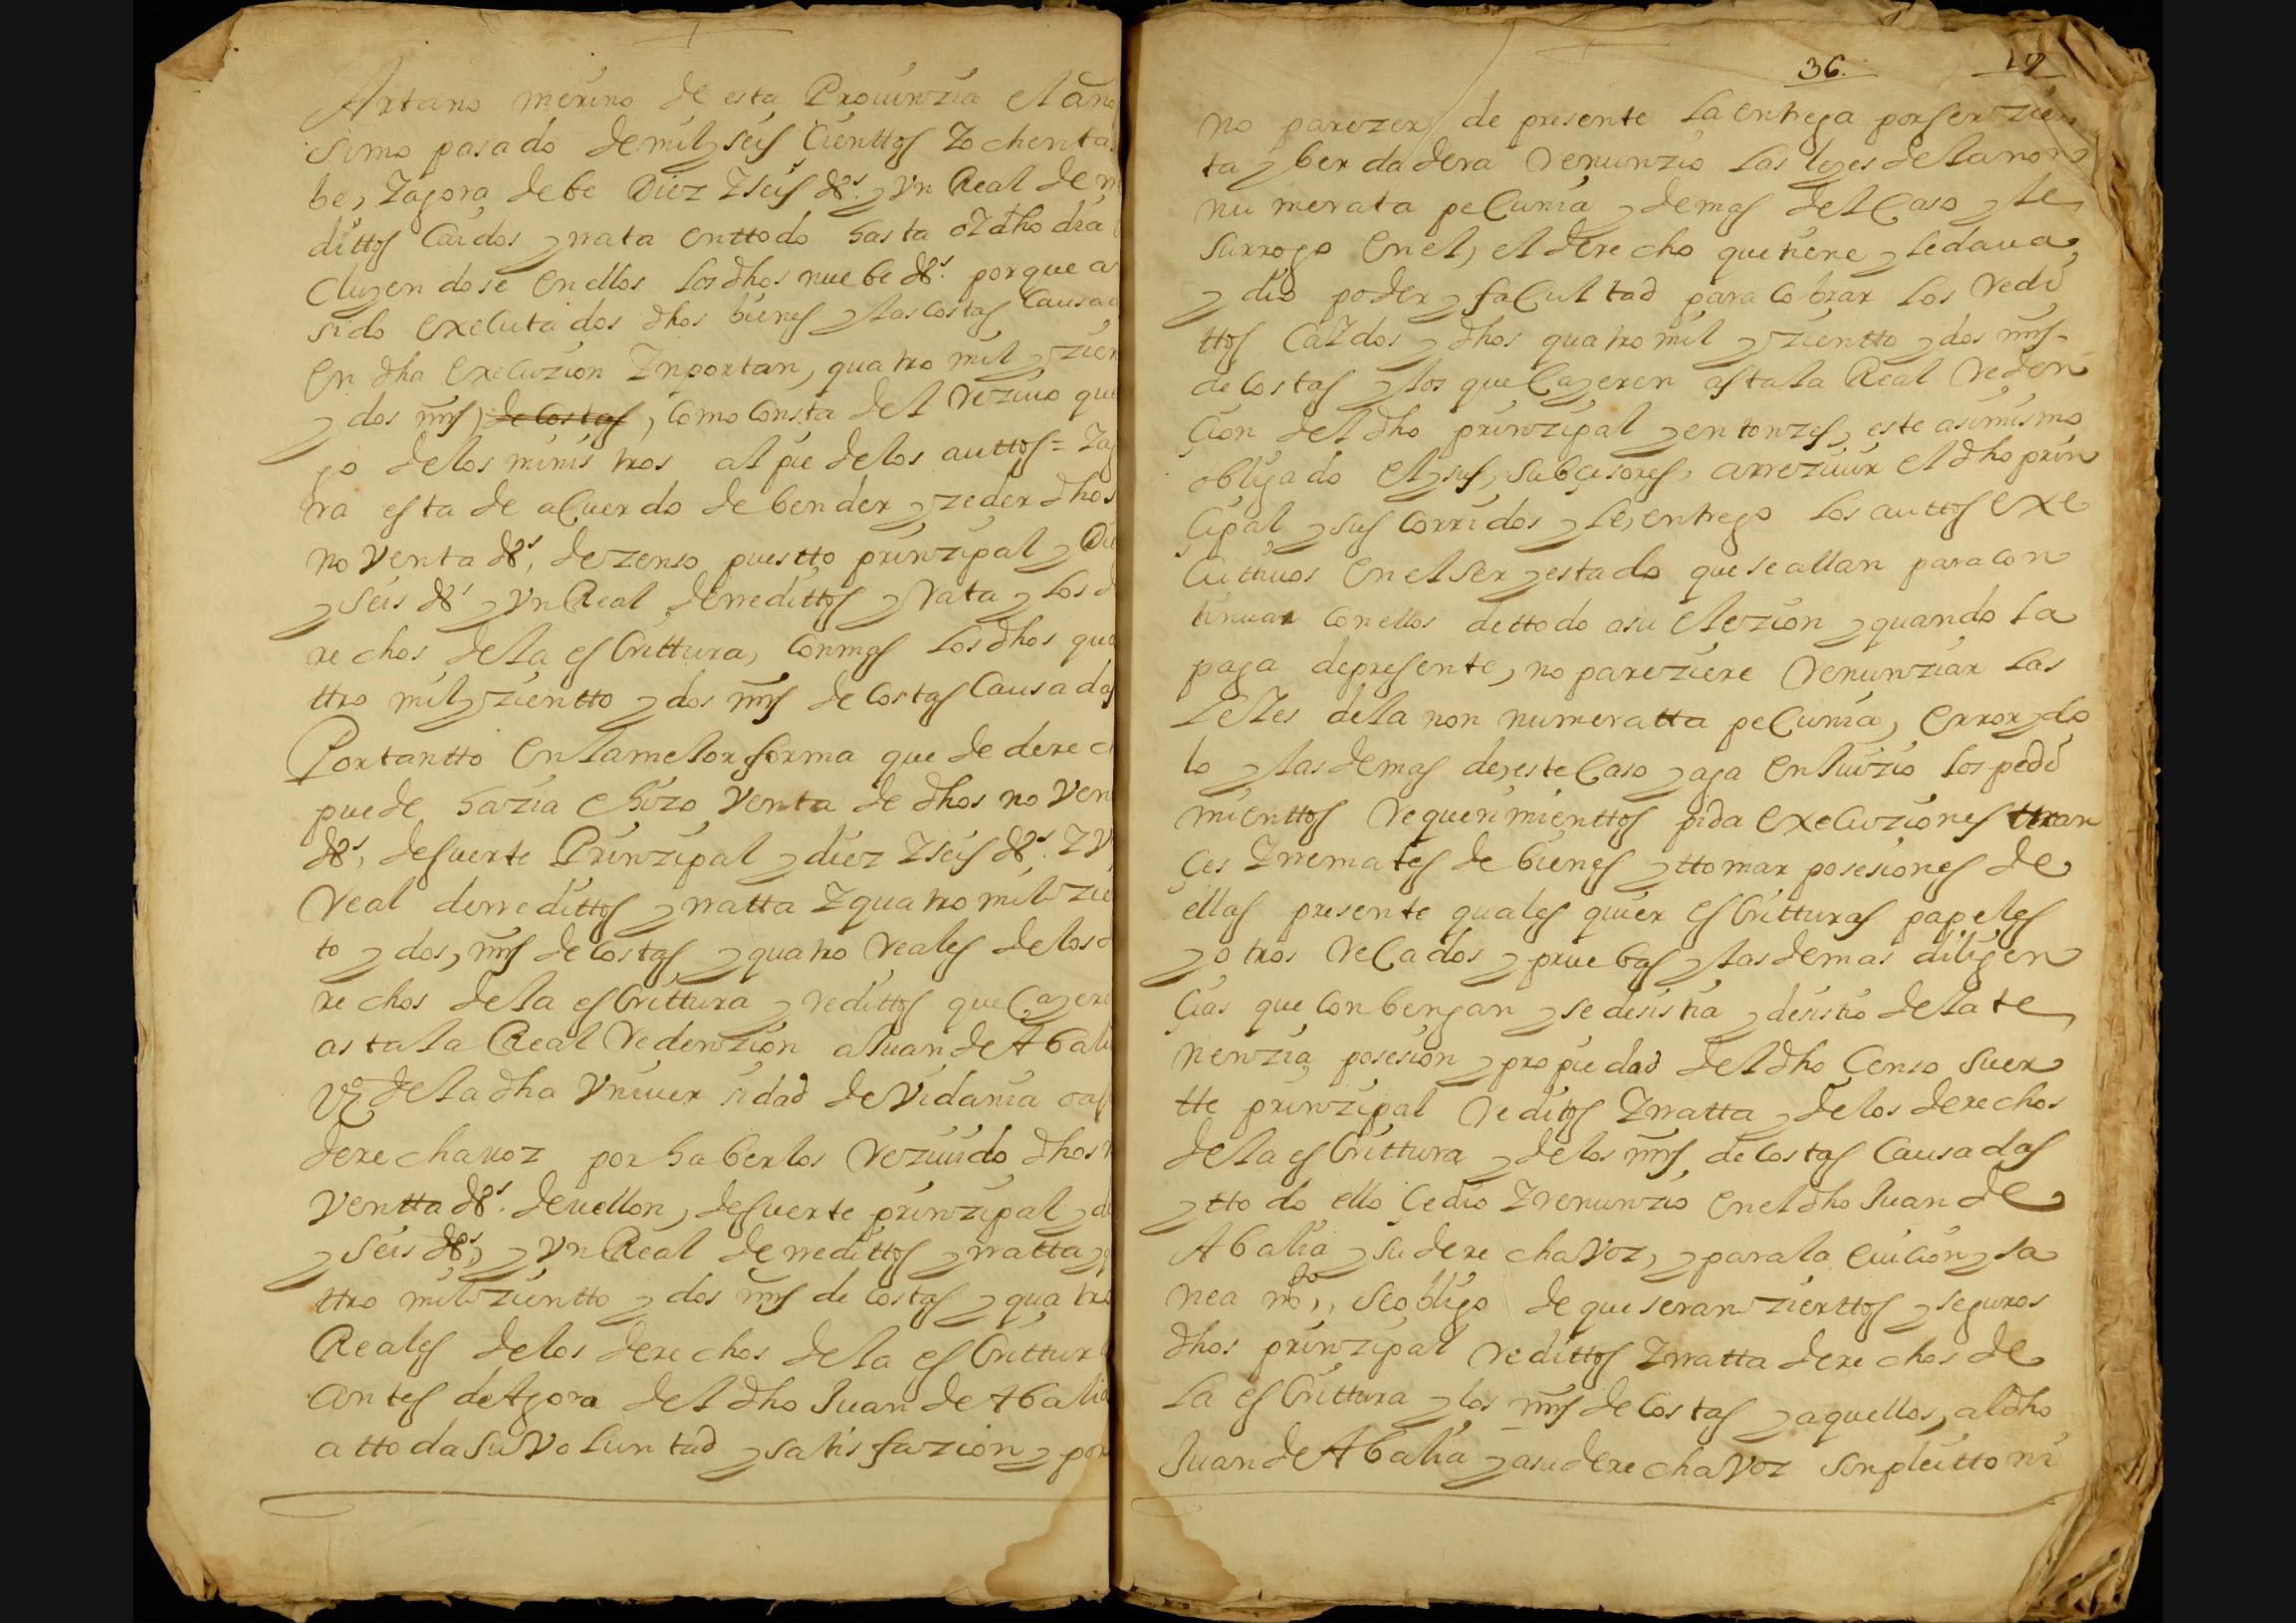 Artano merino de esta Prouinzia el año
simo pasado demil y seis cienttos Zochenta
be, Zagora debe Diez Zseis ds. y vn Real de
dittos Caidos y rrata enttodo hasta oZ dho dia
cluyendose en ellos los dhos nuebe ds. porque a
sido executados dhos bienes y las costas causad
en dha execuzion Znportan, quatro mil y zien
y dos mrs, de costas, como consta del reziuo que
jo delos ministros al pie delos auttos = Zag
ra esta de acuerdo de bender y zeder dhos
noventa ds. dezenso puestto prinzipal y Di
y seis ds y vn Real derredittos y Rata y los d
rechos dela escrittura, conmas los dhos qua
ttro mil y zientto y dos mrs de costas causadas
Portantto enlamelor forma que de derec
puede hazia ehizo venta de dhos noven
ds, desuerte Prinzipal y diez Zseis ds. Zv
Real derredittos y rratta Zquatro mill zie
to y dos, mrs de costas y quatro reales delos d
rechos dela escrittura y redittos que Cayere
astala Real redenzion aJuan de Abali
Vº dela dha Vniuersidad de Vidania oas
derechavoz por haberlos reziuido dhos
Ventta ds. devellon, desuerte prinzipal y di
y seis ds, y vn Real de rredittos y rratta y
ttro mill zientto y dos mrs de costas y quatro
Reales delos derechos dela escrittur
antes deAgora del dho Juan de Abalia
attoda su voluntad y satisfazion y por
36. 19
no parezer de presente la entrega por ser zier
ta y berdadera renunzio las leyes dela non
numerata pecunia y demas del Caso y le
surrogo en el, el derecho que tiene y le daua,
y dio poder y facultad para cobrar los redi
ttos CaZdos y dhos quatro mil y zientto y dos mrs
de costas y los que Cayeren astala Real reden
çion del dho prinzipal y entonzes, este asimismo
obligado el y sus, subçesores, arreziuir el dho prin
çipal y sus corridos y le, entrego los auttos exe
cuttiuos en el ser y estado que se allan para con
tinuar con ellos dettodo asu elezion y quando la
paga depresente, no pareziere renunziar las
LeZes dela non numeratta pecunia, error y do
lo y las demas de, este Caso y aga enJuizio los pedi
mienttos requerimienttos pida execuziones ttran
çes Zrremates de bienes y ttomar posesiones de
ellas presente quales quier escritturas papeles
y otros recados y pruebas y las demas diligen
çias que conbengan y se desistia y desistio dela te
nenzia posesion y propiedad del dho Censo suer
tte prinzipal reditos Zrratta y delos derechos
dela escrittura y delos mrs de costas causadas
y ttodo ello çedio Zrenunzio en el dho Juan de
Abalia y su derechavoz, y parala euicion y sa
neamto,, se obligo de que seran zierttos y seguros
dhos prinzipal redittos Zrratta derechos de
la escrittura y los mrs de costas y aquellos, al dho
Juan de Abalia y asu derechavoz sin pleitto ni